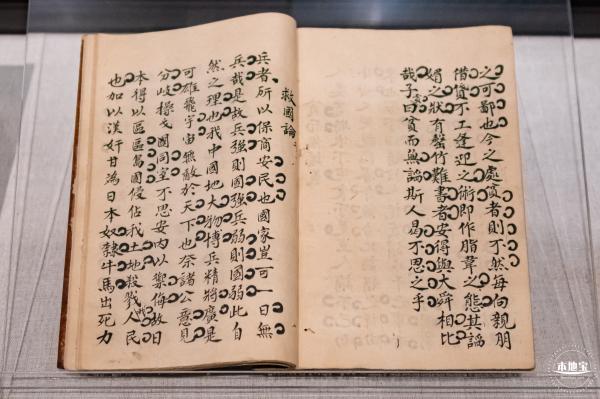 之可鄙也今之處貧者則不然每向親朋
借貸不工逢迎之術即作脂韋之態其謟
媚之狀有罄竹難書者安得與大舜相比
哉子曰貧而無謟斯人曷不思之乎
救國論
兵者所以保商安民也國家豈可一日無
兵哉是故兵強則國強兵弱則國弱此自
然之理也我中國地大物博兵精將廣是
可雄飛宇宙無敵於天下也奈諸公意見
分歧操戈同室不思安內以禦侮故日
本得以區區島國侵佔我土地殺戮人民
也加以漢奸甘為日本奴隸牛馬出死力
本地宝